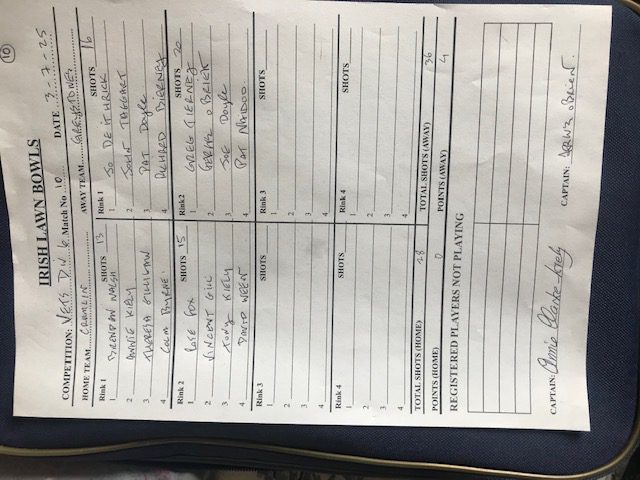 10
IRISH LAWN BOWLS
COMPETITION: VETS DIV 6 Match No 10 DATE 3-7-25
HOME TEAM CRUMLIN AWAY TEAM GREYSTONES
Rink 1 SHOTS 13 Rink 1 SHOTS 16
1 BRENDAN WALSH 1 JO DEITHRICK
2 ANNIE KIELY 2 JOHN TAGGART
3 THERESA GILLIGAN 3 PAT Doyle
4 COLM BYRNE 4 RICHARD BIERNEY
Rink 2 SHOTS 15 Rink2 SHOTS 20
1 ROSE FOX 1 GREG TIERNEY
2 VINCENT GILL 2 O BRIEN
3 TONY KIELY 3 JOE Doyle
4 DAVID WEEN 4 PAT NAIDOO
Rink 3 SHOTS Rink 3 SHOTS
1 1
2 2
3 3
4 4
Rink 4 SHOTS Rink 4 SHOTS
1 1
2 2
3 3
4 4
TOTAL SHOTS (HOME) 28 TOTAL SHOTS (AWAY) 36
POINTS (HOME) 0 POINTS (AWAY) 4
REGISTERED PLAYERS NOT PLAYING
CAPTAIN: Annie Clarke Kiely CAPTAIN: O'BRIEN.